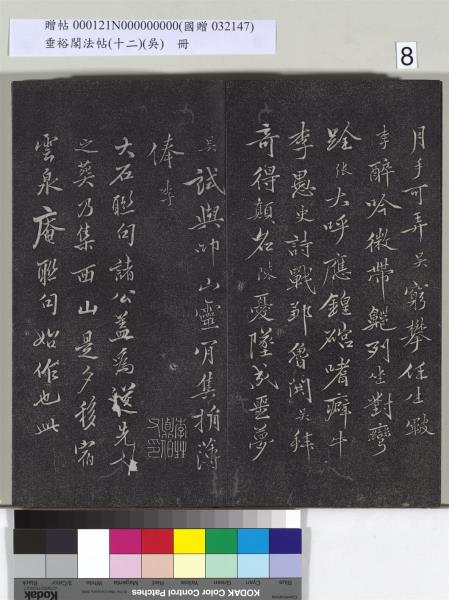 贈帖 000121N000000000(國贈 032147)
垂裕閣法帖(十二)(吳) 冊
8
月手可弄 吳 窮攀任生
李 醉吟微帶 列坐對彎
張 大呼應鏜 嗜癖牛
李愚 史 詩戰鄒魯閧 吳 
奇得顛名 陳 憂墜成噩夢
吳 試與叩山靈 月集捐薄
俸 李
大石聯句諸公蓋為從先人
之葬乃集西山是夕移宿
雲泉庵聯句始作也此
Kodak Color Control Patches
Blue
Cyan
Green
Yellow
Red
Magenta
White
3/Color
Black